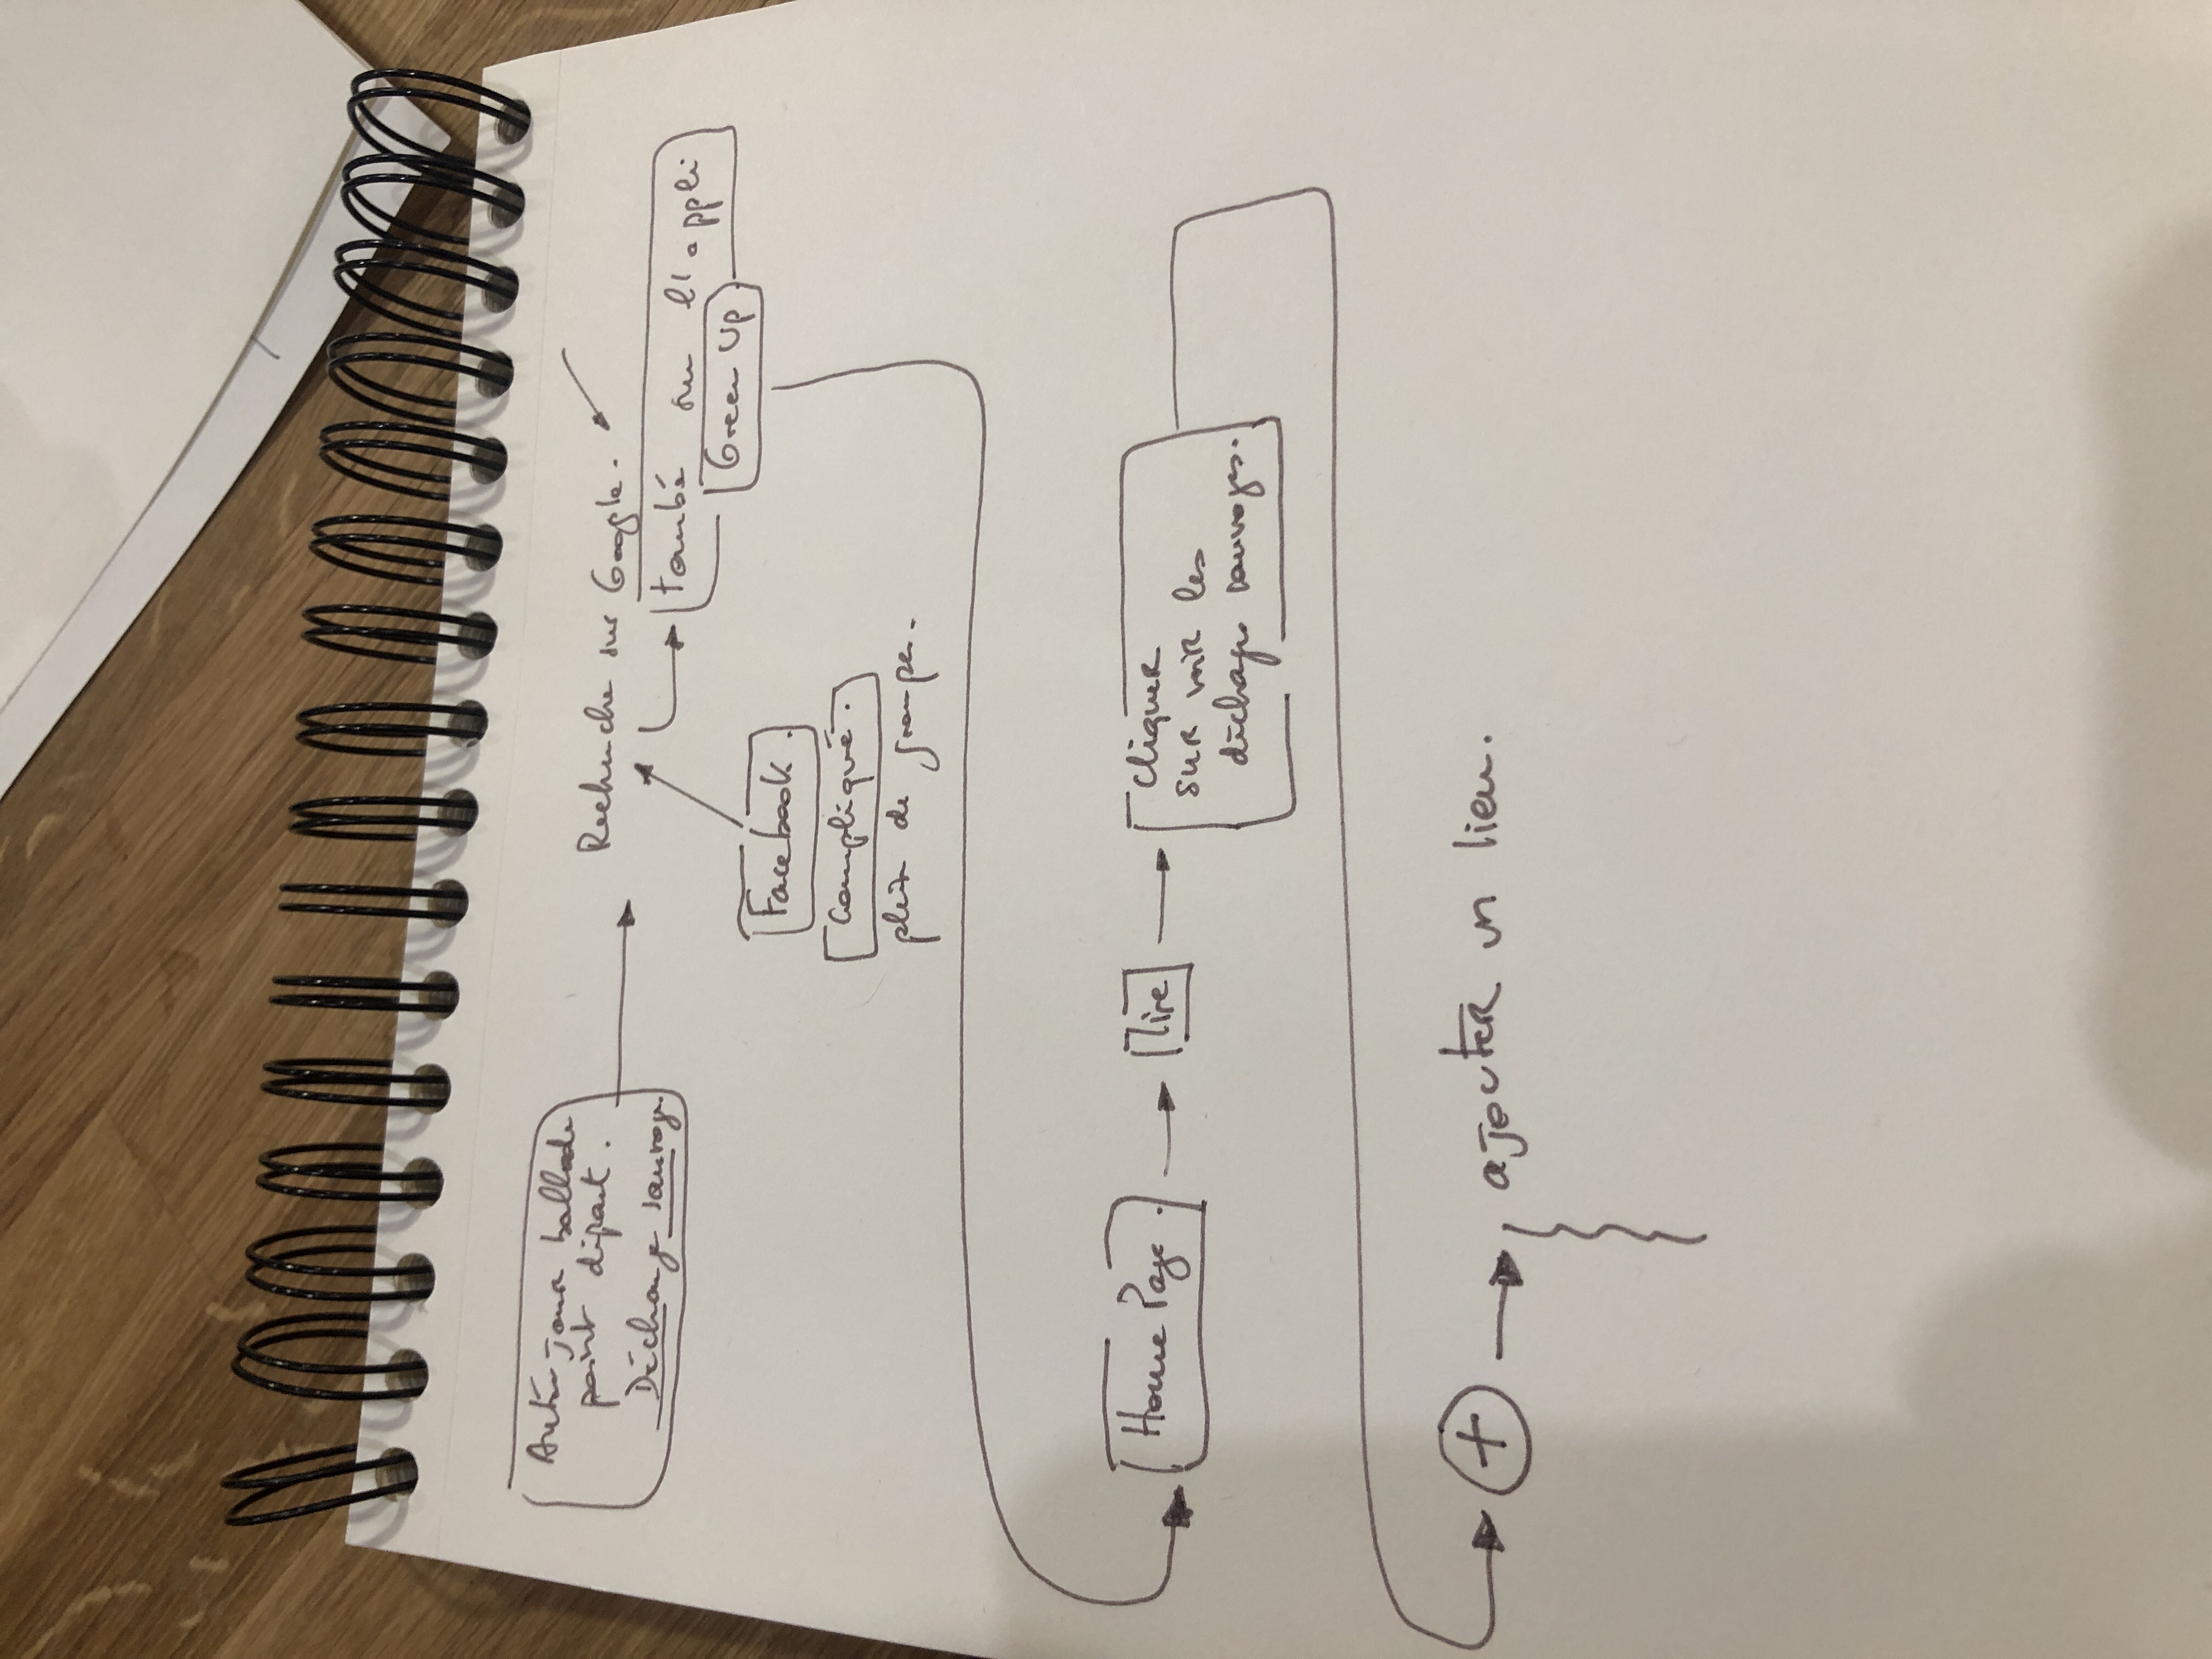 jour ballade
point départ.
Décharge sauvage.
Recherche sur Google.
tombé sur l'appli
Green Up
Facebook.
Compliqué.
plein de groupes.
Home Page.
lire
cliquer
sur voir les
décharges sauvages.
+
ajouter un lieu.